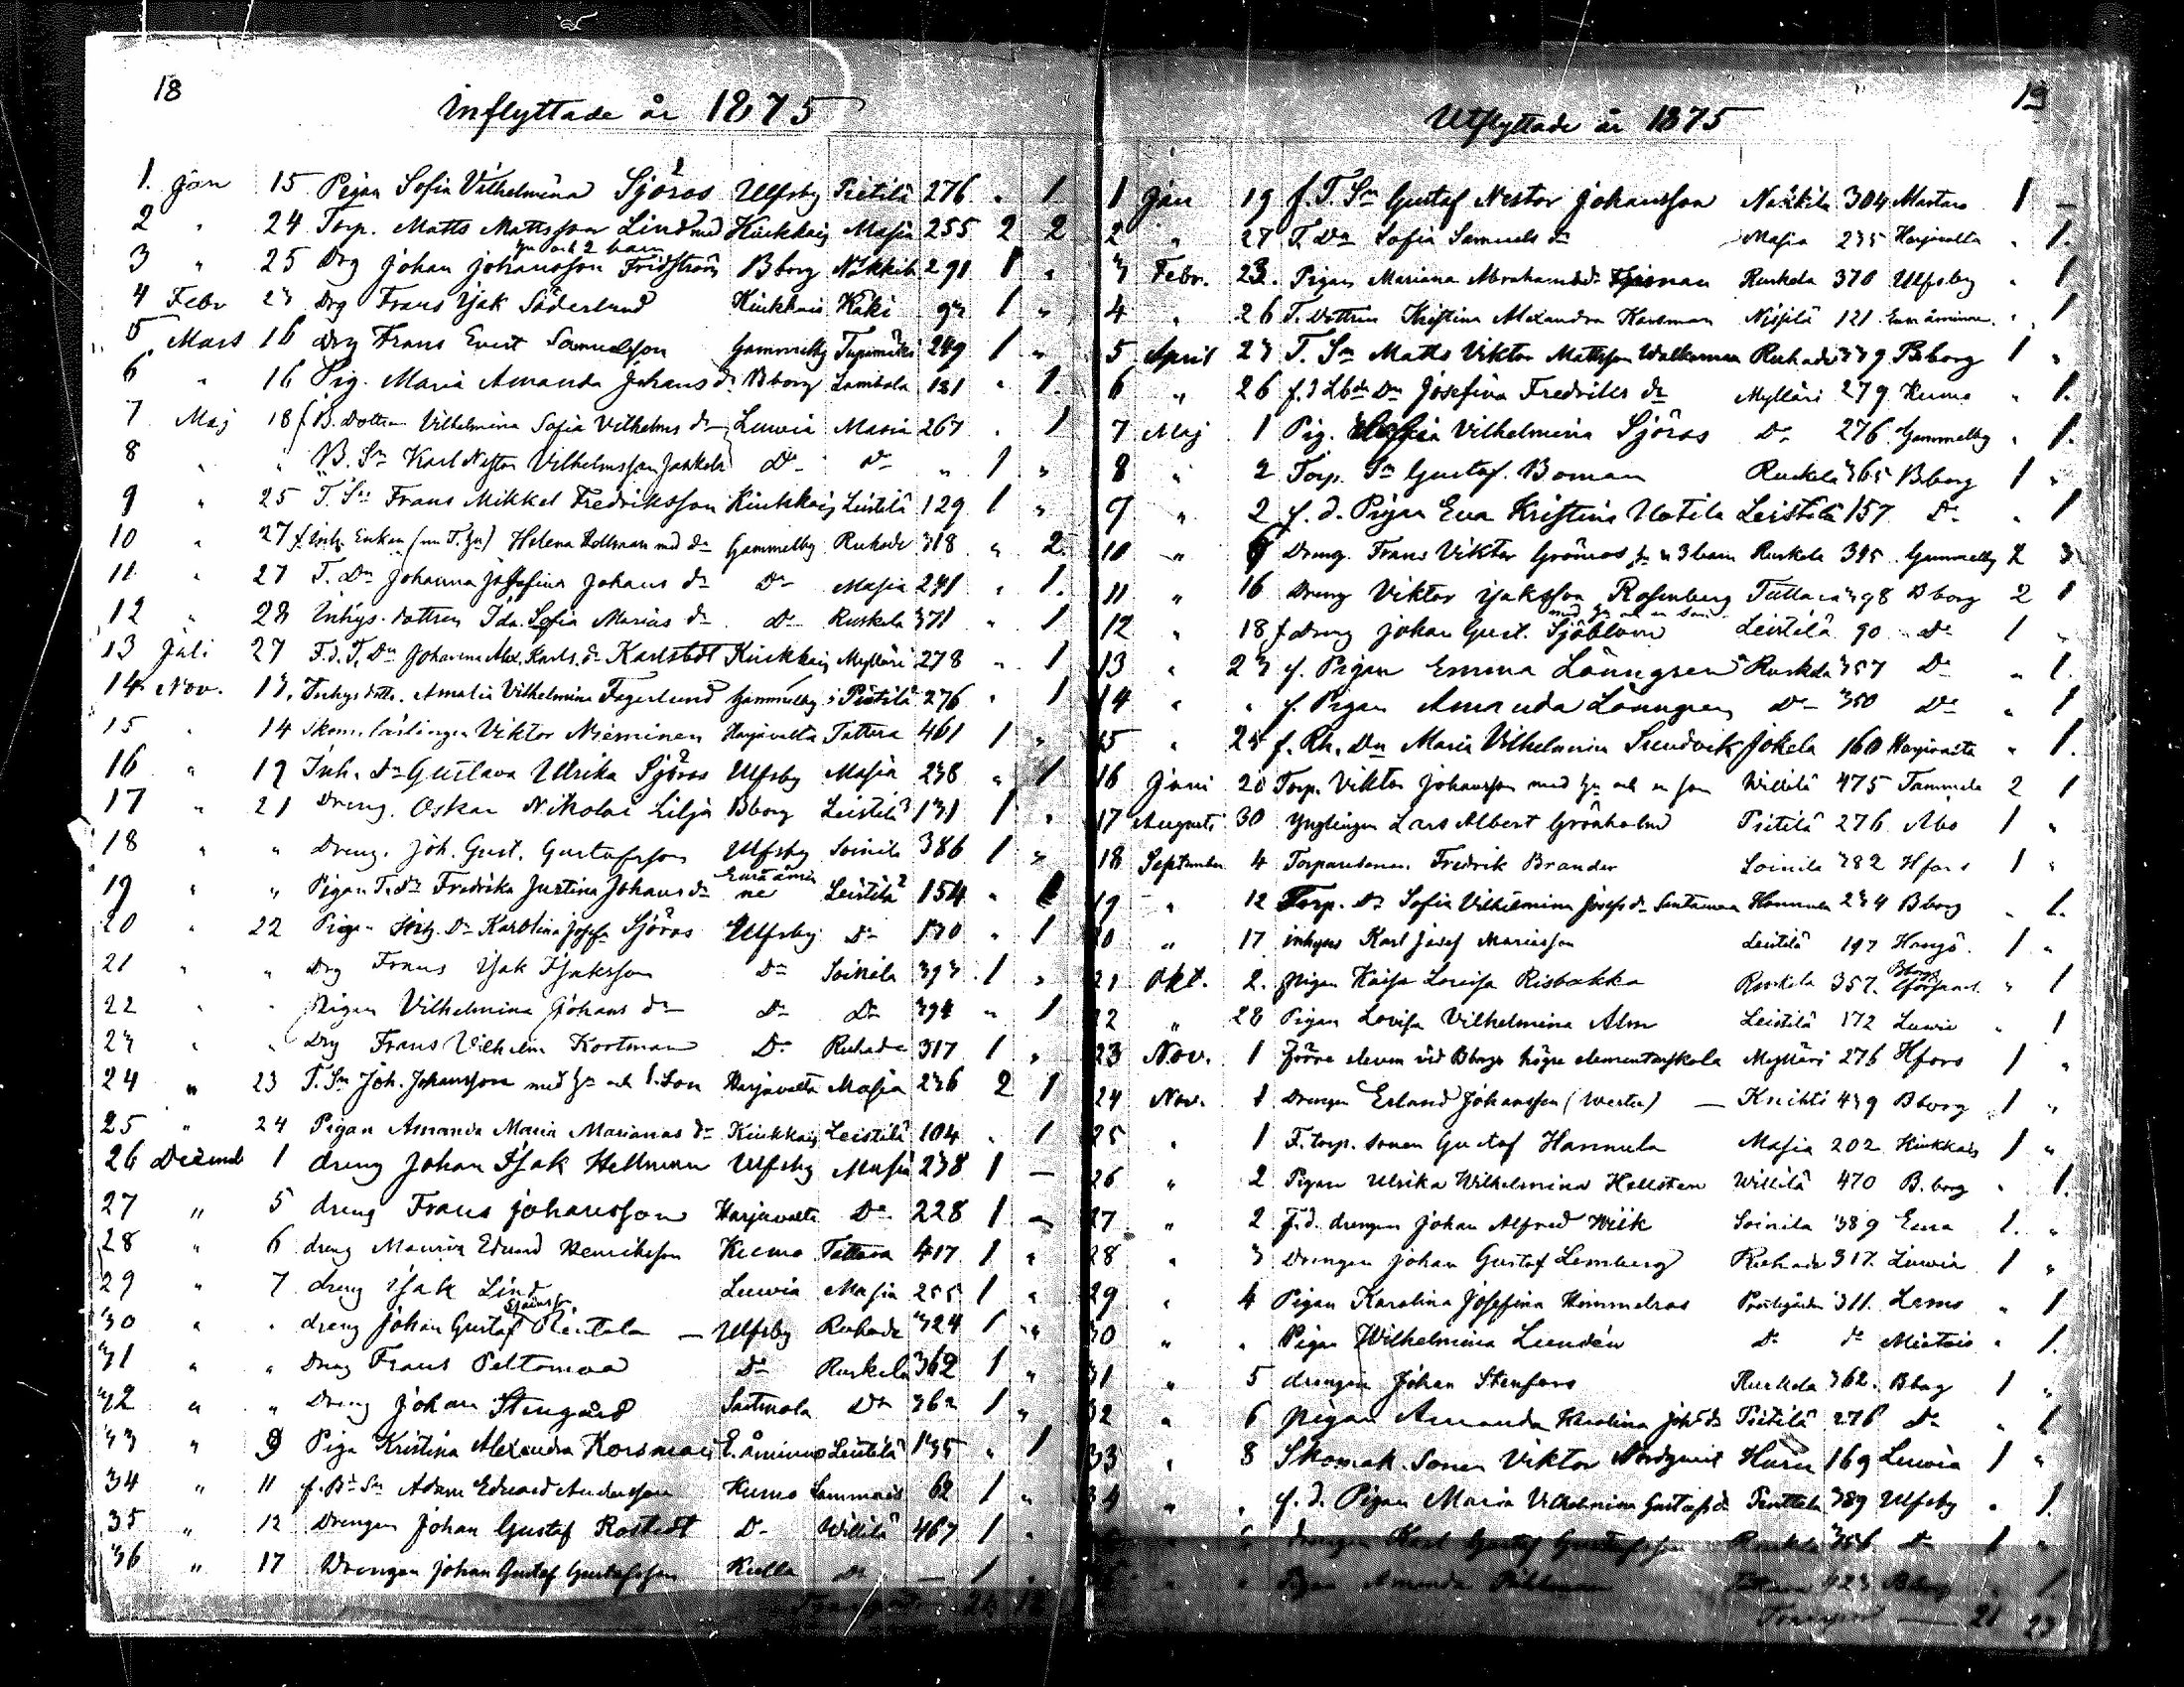 18
Inflyttade år 1875
1. Jan 15 Pigan Sofia Vilhelmina Sjöros Ulfsby Pietilä 276 " 1
2 " 24 Torp. Matts Mattsson Lind med Kiukkais Masia 255 2 2
hu och 2 barn
3 " 25 Drg Johan Johansson Fridström Bborg Näkkilä 291 1 "
4 Febr 23 Drg Frans Isak Söderlund Kiukkais Kaki 92 1 "
5 Mars 16 Drg Frans Evert Samuelsson Gammelby 249 1 "
6 " 16 Pig. Maria Amanda Johans dr Bborg Lambola 181 " 1.
7 Maj 18 f. B. Dottren Vilhelmina Sofia Vilhelms dr Luvia Masia 267 " 1
8 " " B. Sn Karl Nestor Vilhelmsson Jaakola Do Do " 1 "
9 " 25 T. Sn Frans Mikkel Fredriksson Kiukkais Leistilä 129 1 "
10 " 27 f. Inh. Enkan (nu T. hu) Helena med dr Gammelby Ruhade 318 " 2.
11 " 27 T. Dn Johanna Josefina Johans dr Do Masia 241 " 1.
12 " 28 Inhys. dottren Ida Sofia Marias dr Do Ruskela 371 " 1
13 Juli 27 F.d. T. Dn Johanna Alex. Karls dr Karlstedt Kiukkais Mylläri 278 " 1
14 Nov. 13. Inhys dottr. Amalia Vilhelmina Fagerlund Gammelby Pietilä 276 " 1
15 " 14 Skom. lärlingen Viktor Nieminen Harjavalta Tattara 461 1 "
16 " 19 Inh. Dn Gustava Ulrika Sjöros Ulfsby Masia 238 " 1
17 " 21 Dreng. Oskar Nikolai Lilja Bborg Leistilä 131 1 "
18 " " Dreng. Joh. Gust. Gustafsson Ulfsby Soinila 386 1 "
19 " " Pigan T. dr Fredrika Justina Johans dr Eura åminne Leistilä 154 " 1
20 " 22 Pigan Karolina Josefa Sjöros Ulfsby Do 170 " 1
21 " " Drg Frans Isak Isaksson Do Soinila 393 1 "
22 " " Pigan Vilhelmina Johans dr Do Do 394 " 1
23 " " Drg Frans Vilhelm Kortman Do Ruhade 317 1 "
24 " 23 T. Sn Joh. Johansson med hu och 1. Son Harjavalta Masia 236 2 1
25 " 24 Pigan Amanda Maria Marianas dr Kiukkais Leistilä 104 " 1
26 Decemb 1 dreng Johan Isak Hellman Ulfsby Masia 238 1 —
27 " 5 dreng Frans Johansson Harjavalta Do 228 1 "
28 " 6 dreng Mauritz Eduard Henriksson Kumo Tattara 417 1 "
29 " 7 dreng Isak Lind Luvia Masia 255 1 "
30 " " dreng Johan Gustaf Rentala — Ulfsby Ruhade 324 1 "
31 " " Dreng Frans Peltomaa Do Ruskela 362 1 "
32 " " Dreng Johan Stengård Sastmola Do 362 1 "
33 " 9 Piga Kristina Alexandra Korsman E. åminne Leistilä 135 " 1
34 " 11 f. Bd Sn Adam Eduard Andersson Kumo Lammais 62 1 "
35 " 12 Drengen Johan Gustaf Rostedt Do Willilä 467 1 "
36 " 17 Drengen Johan Gustaf Gustafsson Kulla Do — 1 "
Transport 26 18
19
Utflyttade år 1875
1 Jan 19 f. T. Sn Gustaf Nestor Johansson Näkkilä 304 Marttais 1 —
2 " 27 T. Dn Sofia Samuels dr Masia 235 Harjavalta " 1.
3 Febr. 23. Pigan Mariana Abrahams dr Ruskela 370 Ulfsby " 1
4 " 26 T. Dottren Kristina Alexandra Korsman 121 Eura åminne " 1
5 April 23 T. Sn Matts Viktor Mattsson Ruhade 339 Bborg 1 "
6 " 26 Dn Josefina Fredriks dr Mylläri 279 Kumo " 1.
7 Maj 1 Pig. Sofia Vilhelmina Sjöros Do 276 Gammelby " 1.
8 " 2 Torp. Sn Gustaf Boman Ruskela 365 Bborg 1 "
9 " 2 f.d. Pigan Eva Kristina Uotila Leistilä 157 Do " 1
10 " 9 Dreng. Frans Viktor Grönroos hu o 3 barn Ruskela 395 Gammelby 2 3
11 " 16 Dreng Viktor Isaksson Rosenberg Tattara 398 Bborg 2 1
med hu och en Son
12 " 18 f. Dreng Johan Gust. Sjöblom Leistilä 90 Do 1 "
13 " 23 f. Pigan Emma Lönngren Ruskela 357 Do " 1.
14 " " f. Pigan Amanda Lönngren Do 350 Do " 1
15 " 25 f. Rh. Dn Maria Vilhelmina Sundvik Jokela 160 Harjavalta " 1.
16 Juni 20 Torp. Viktor Johansson med hu och en son Willilä 475 Tammela 2 1
17 Augusti 30 Ynglingen Lars Albert Grönholm Pietilä 276 Åbo 1 "
18 September 4 Torparesonen Fredrik Brander Soinila 382 Hfors 1 "
19 " 12 Torp. Dr Sofia Vilhelmina Josefs dr Santanen Hannula 234 Bborg " 1.
20 " 17 inhyses Karl Josef Mariasson Leistilä 197 Hangö 1 "
21 Okt. 2. pigan Kaisa Lovisa Risbakka Ruskela 357. Bborgs församl. " 1
22 " 28 Pigan Lovisa Vilhelmina Alm Leistilä 172 Luvia " 1
23 Nov. 1 Förre eleven vid Bborgs högre elementarskola Mylläri 276 Hfors 1 "
24 Nov. 1 Drengen Erland Johansson (Wester) — Knihti 439 Bborg 1 "
25 " 1 F. torp. sonen Gustaf Hannula Masia 202 Kiukkais 1 "
26 " 2 Pigan Ulrika Wilhelmina Hellsten Willilä 470 B.borg " 1.
27 " 2 f.d. drengen Johan Alfred Wiik Soinila 389 Eura 1. "
28 " 3 Drengen Johan Gustaf Lemberg Ruhade 317. Luvia 1 "
29 " 4 Pigan Karolina Josefina Himmelroos Prestgården 311. Lemo " 1
30 " " Pigan Wilhelmina Lundén Do do Mietois " 1.
31 " 5 drengen Johan Stenfors Ruskela 362. Bborg 1 "
32 " 6 pigan Amanda Karolina Johs dr Pietilä 276 Do " 1
33 " 8 Skomak. Sonen Viktor Nordqvist Haru 169 Luvia 1 "
34 " " f.d. Pigan Maria Vilhelmina Gustafs dr Penttala 389 Ulfsby " 1.
" " drengen Karl Gustaf Gustafsson Ruskela 356 Do 1 "
" " Pigan Amanda Pihlman Tattara 423 Bborg " 1.
Transport — 21 23